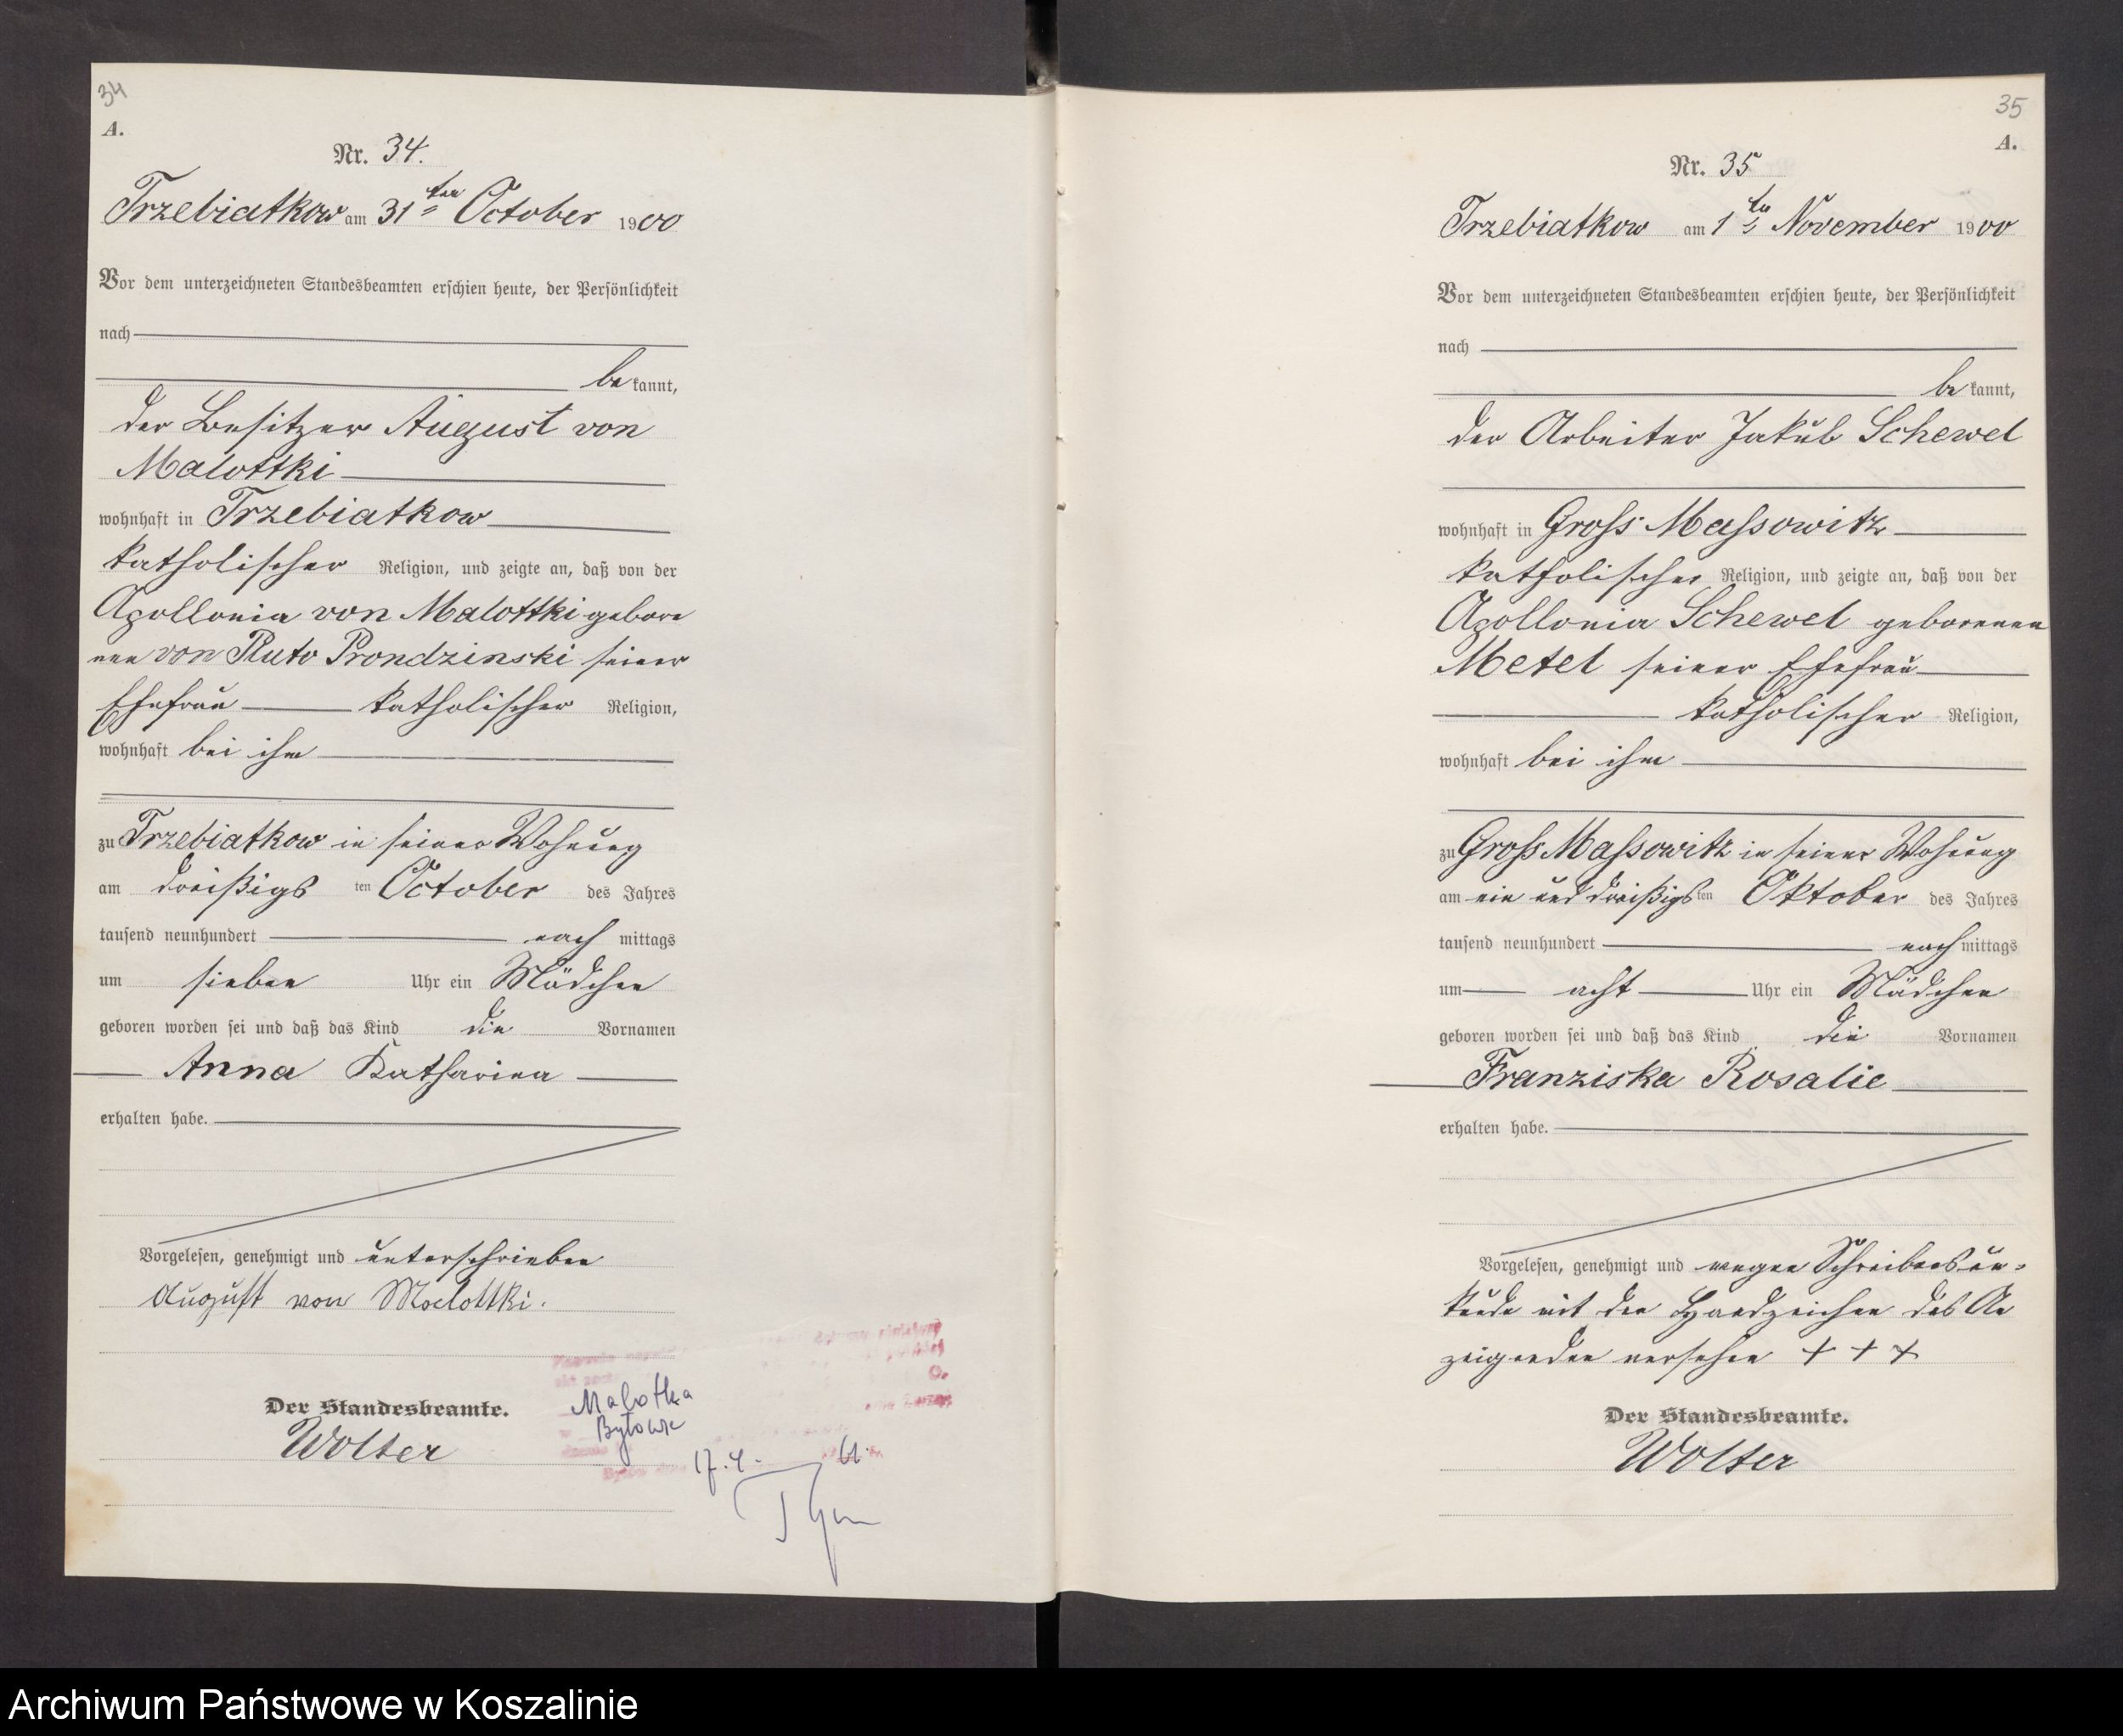 34
A.
Nr. 34.
Trzebiatkow am 31ten October 1900
Vor dem unterzeichneten Standesbeamten erschien heute, der Persönlichkeit
nach
be kannt,
der Besitzer August von
Malottki
wohnhaft in Trzebiatkow
katholischer Religion, und zeigte an, daß von der
Apollonia von Malottki gebore
nen von Pluto Prondzinski seiner
Ehefrau katholischer Religion,
wohnhaft bei ihm
zu Trzebiatkow in seiner Wohnung
am dreißigs ten October des Jahres
tausend neunhundert nach mittags
um sieben Uhr ein Mädchen
geboren worden sei und daß das Kind die Vornamen
Anna Katharina
erhalten habe.
Vorgelesen, genehmigt und unterschrieben
August von Malottki.
Der Standesbeamte.
Wolter
Malotka
Bytowie
17.4. 61
35
A.
Nr. 35
Trzebiatkow am 1ten November 1900
Vor dem unterzeichneten Standesbeamten erschien heute, der Persönlichkeit
nach
be kannt,
der Arbeiter Jakub Schewel
wohnhaft in Gross Massowitz
katholischer Religion, und zeigte an, daß von der
Apollonia Schewel geborenen
Metel seiner Ehefrau
katholischer Religion,
wohnhaft bei ihm
zu Gross Massowitz in seiner Wohnung
am ein und dreißigs ten Oktober des Jahres
tausend neunhundert nach mittags
um acht Uhr ein Mädchen
geboren worden sei und daß das Kind die Vornamen
Franziska Rosalie
erhalten habe.
Vorgelesen, genehmigt und wegen Schreibensun-
kunde mit den Handzeichen des An
zeigenden versehen + + +
Der Standesbeamte.
Wolter
Archiwum Państwowe w Koszalinie